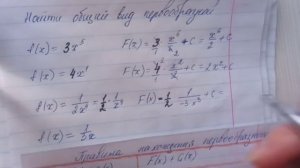 Найти общий вид первообразной
f(x) = 3x⁵ F(x) = 3/1 · x⁶/6₂ + C = x⁶/2 + C
f(x) = 4x¹ F(x) = 4² · x²/2 + C = 2x² + C
f(x) = 1/2x⁴ = 1/2 · 1/x⁴ F(x) = 1/2 · 1/-3x³ + C =
f(x) = 1/5x
Правила нахождения первообразных
F(x) + G(x)